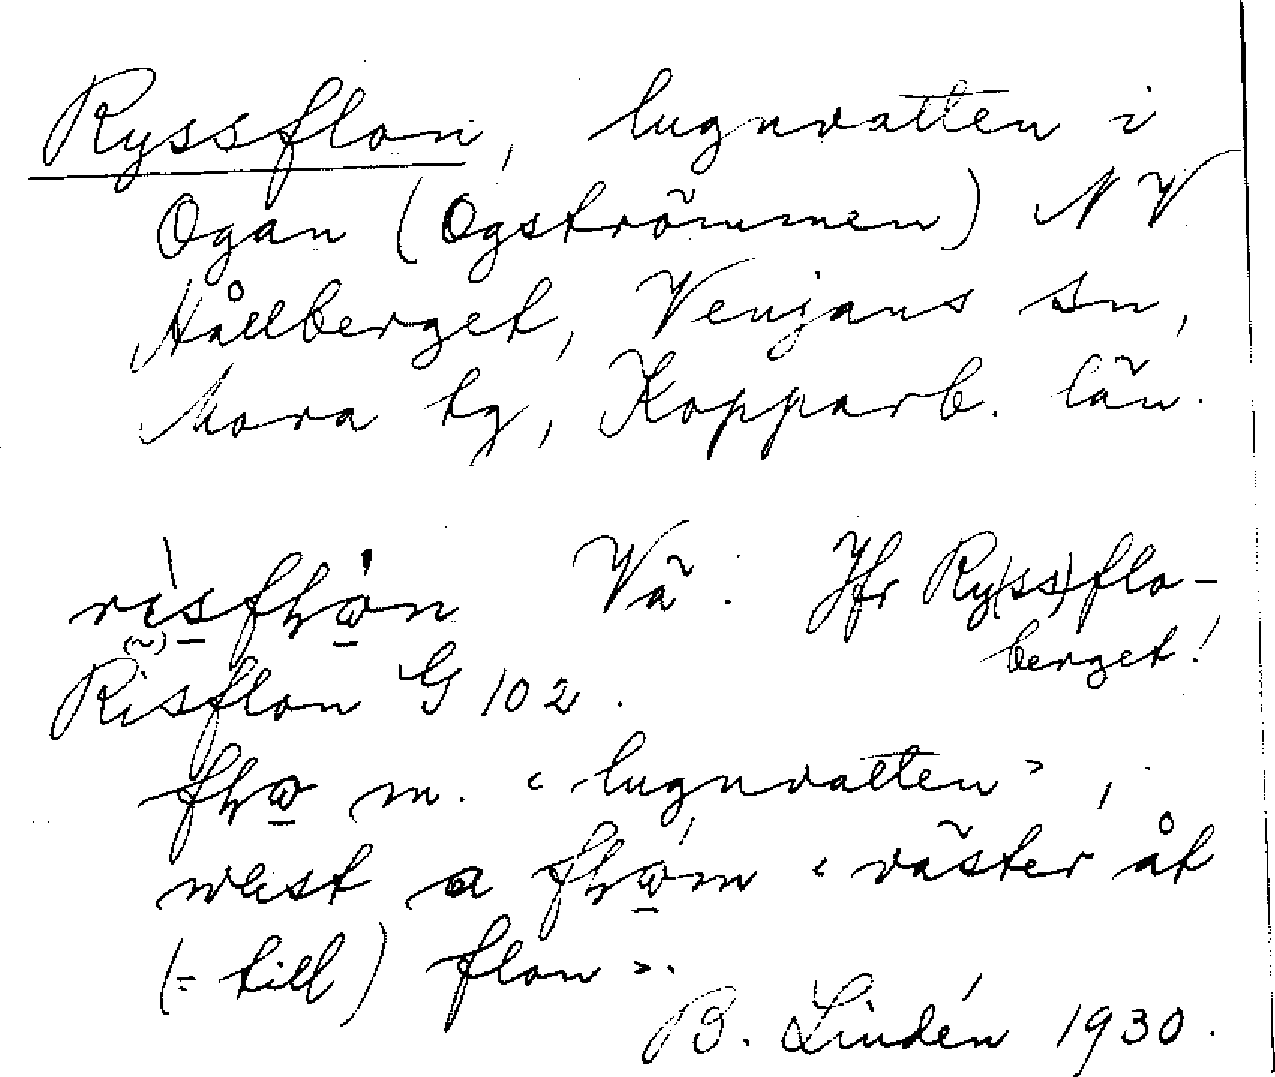 Ryssflon, lugnvatten i
Ogan (Ogströmmen) NV
Hållberget, Venjans sn,
Mora tg, Kopparb. län.
Vä. Jfr Ry(ss)flo-
berget!
Risflon G 102.
m. "lugnvatten",
väst a "väster åt
(= till) flon".
B. Lindén 1930.